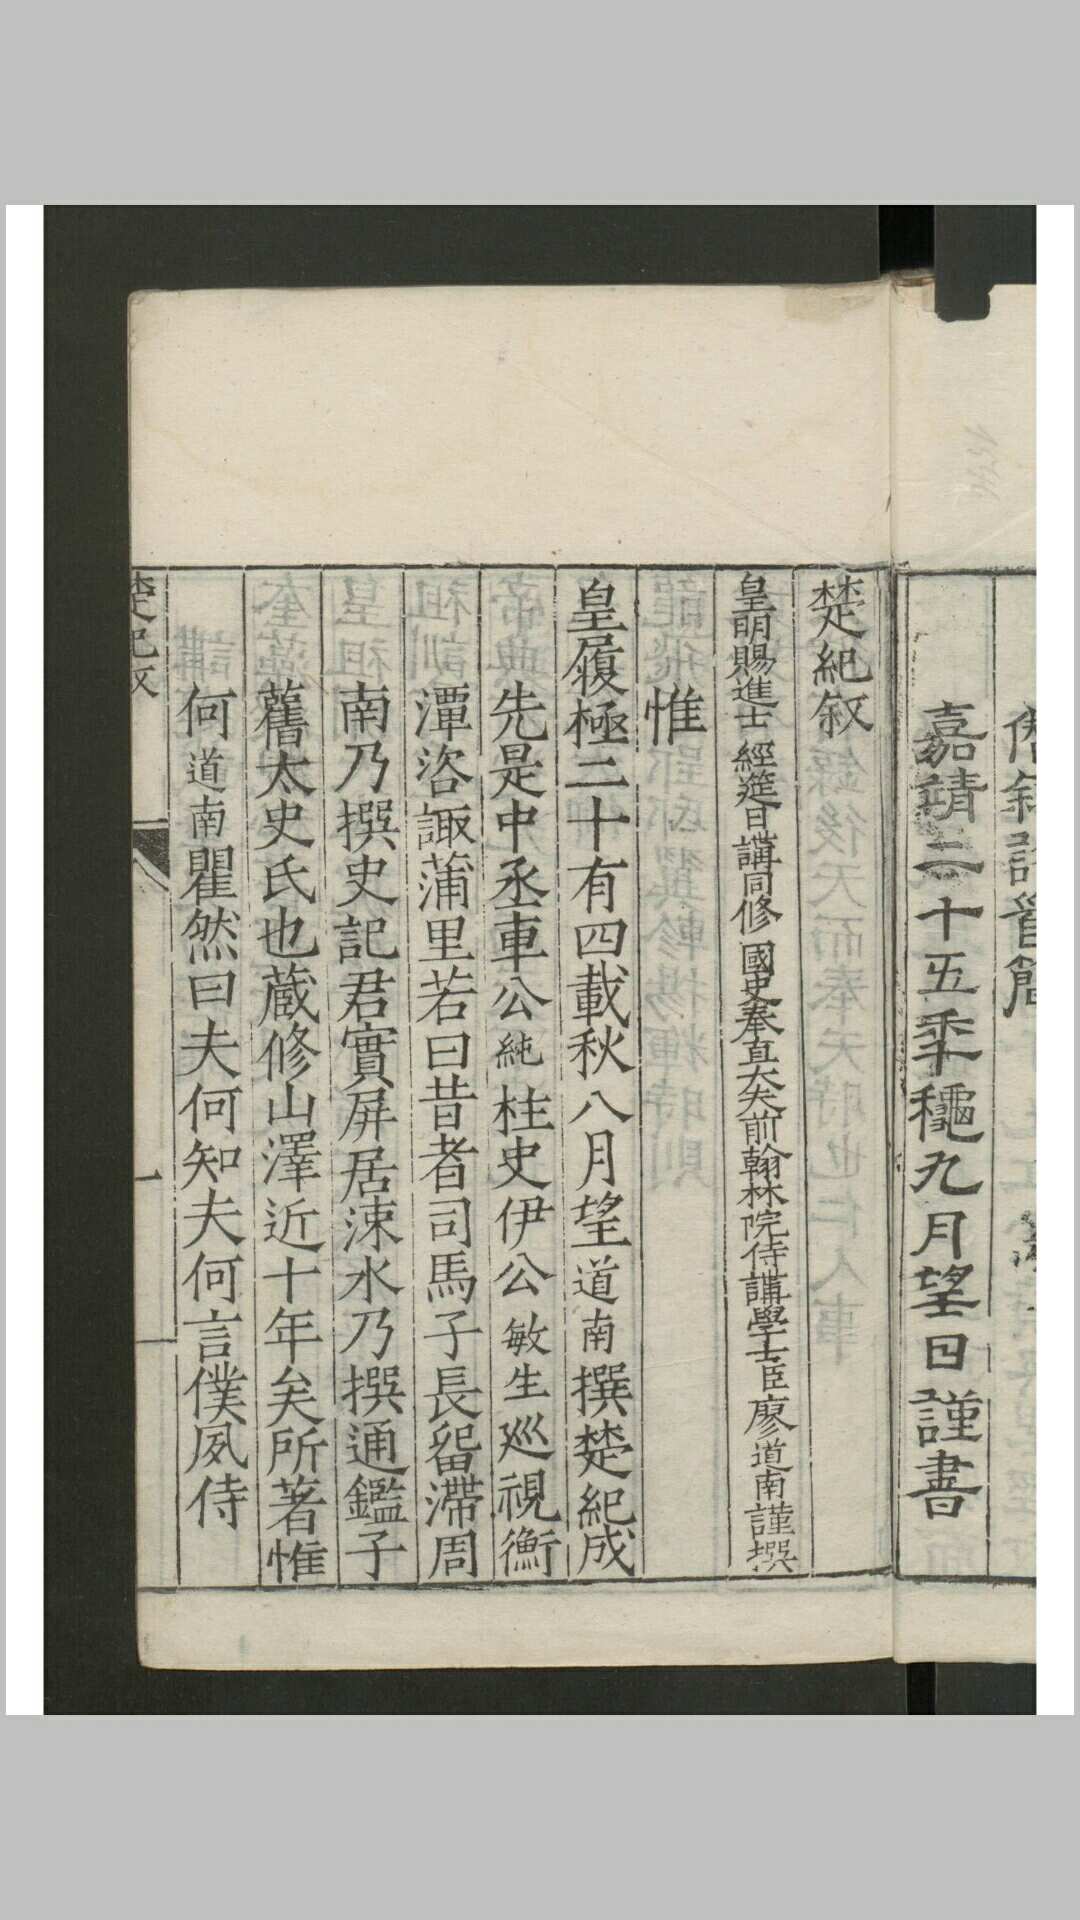 嘉靖二十五秊龝九月望日謹書
楚紀叙
皇明賜進士 經筵日講同修 國史奉直大夫前翰林院侍講學士臣廖道南謹撰
惟
皇履極二十有四載秋八月望道南撰楚紀成
先是中丞車公純柱史伊公敏生巡視衡
潭咨諏蒲里若曰昔者司馬子長畱滯周
南乃撰史記君實屏居涑水乃撰通鑑子
舊太史氏也蔵修山澤近十年矣所著惟
何道南瞿然曰夫何知夫何言僕夙侍
楚紀叙
一